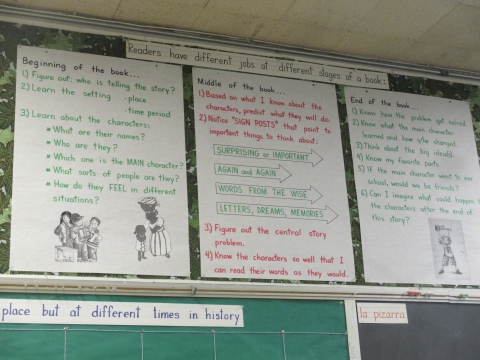 Readers have different jobs at different stages of a book:
Beginning of the book...
1) Figure out: who is telling the story?
2) Learn the setting · place
· time period
3) Learn about the characters:
* What are their names?
* Who are they?
* Which one is the MAIN character?
* What sorts of people are they?
* How do they FEEL in different
situations?
Middle of the book...
1) Based on what I know about the
characters, predict what they will do.
2) Notice "SIGN POSTS" that point to
important things to think about:
SURPRISING or IMPORTANT
AGAIN and AGAIN
WORDS FROM THE WISE
LETTERS, DREAMS, MEMORIES
3) Figure out the central story
problem.
4) Know the characters so well that I
can read their words as they would.
End of the book...
1) Know how the problem got solved.
2) Know what the main character
learned and how s/he changed.
3) Think about the big idea(s).
4) Know my favorite parts.
5) If the main character went to our
school, would we be friends?
6) Can I imagine what could happen to
the characters after the end of
this story?
place but at different times in history
la pizarra